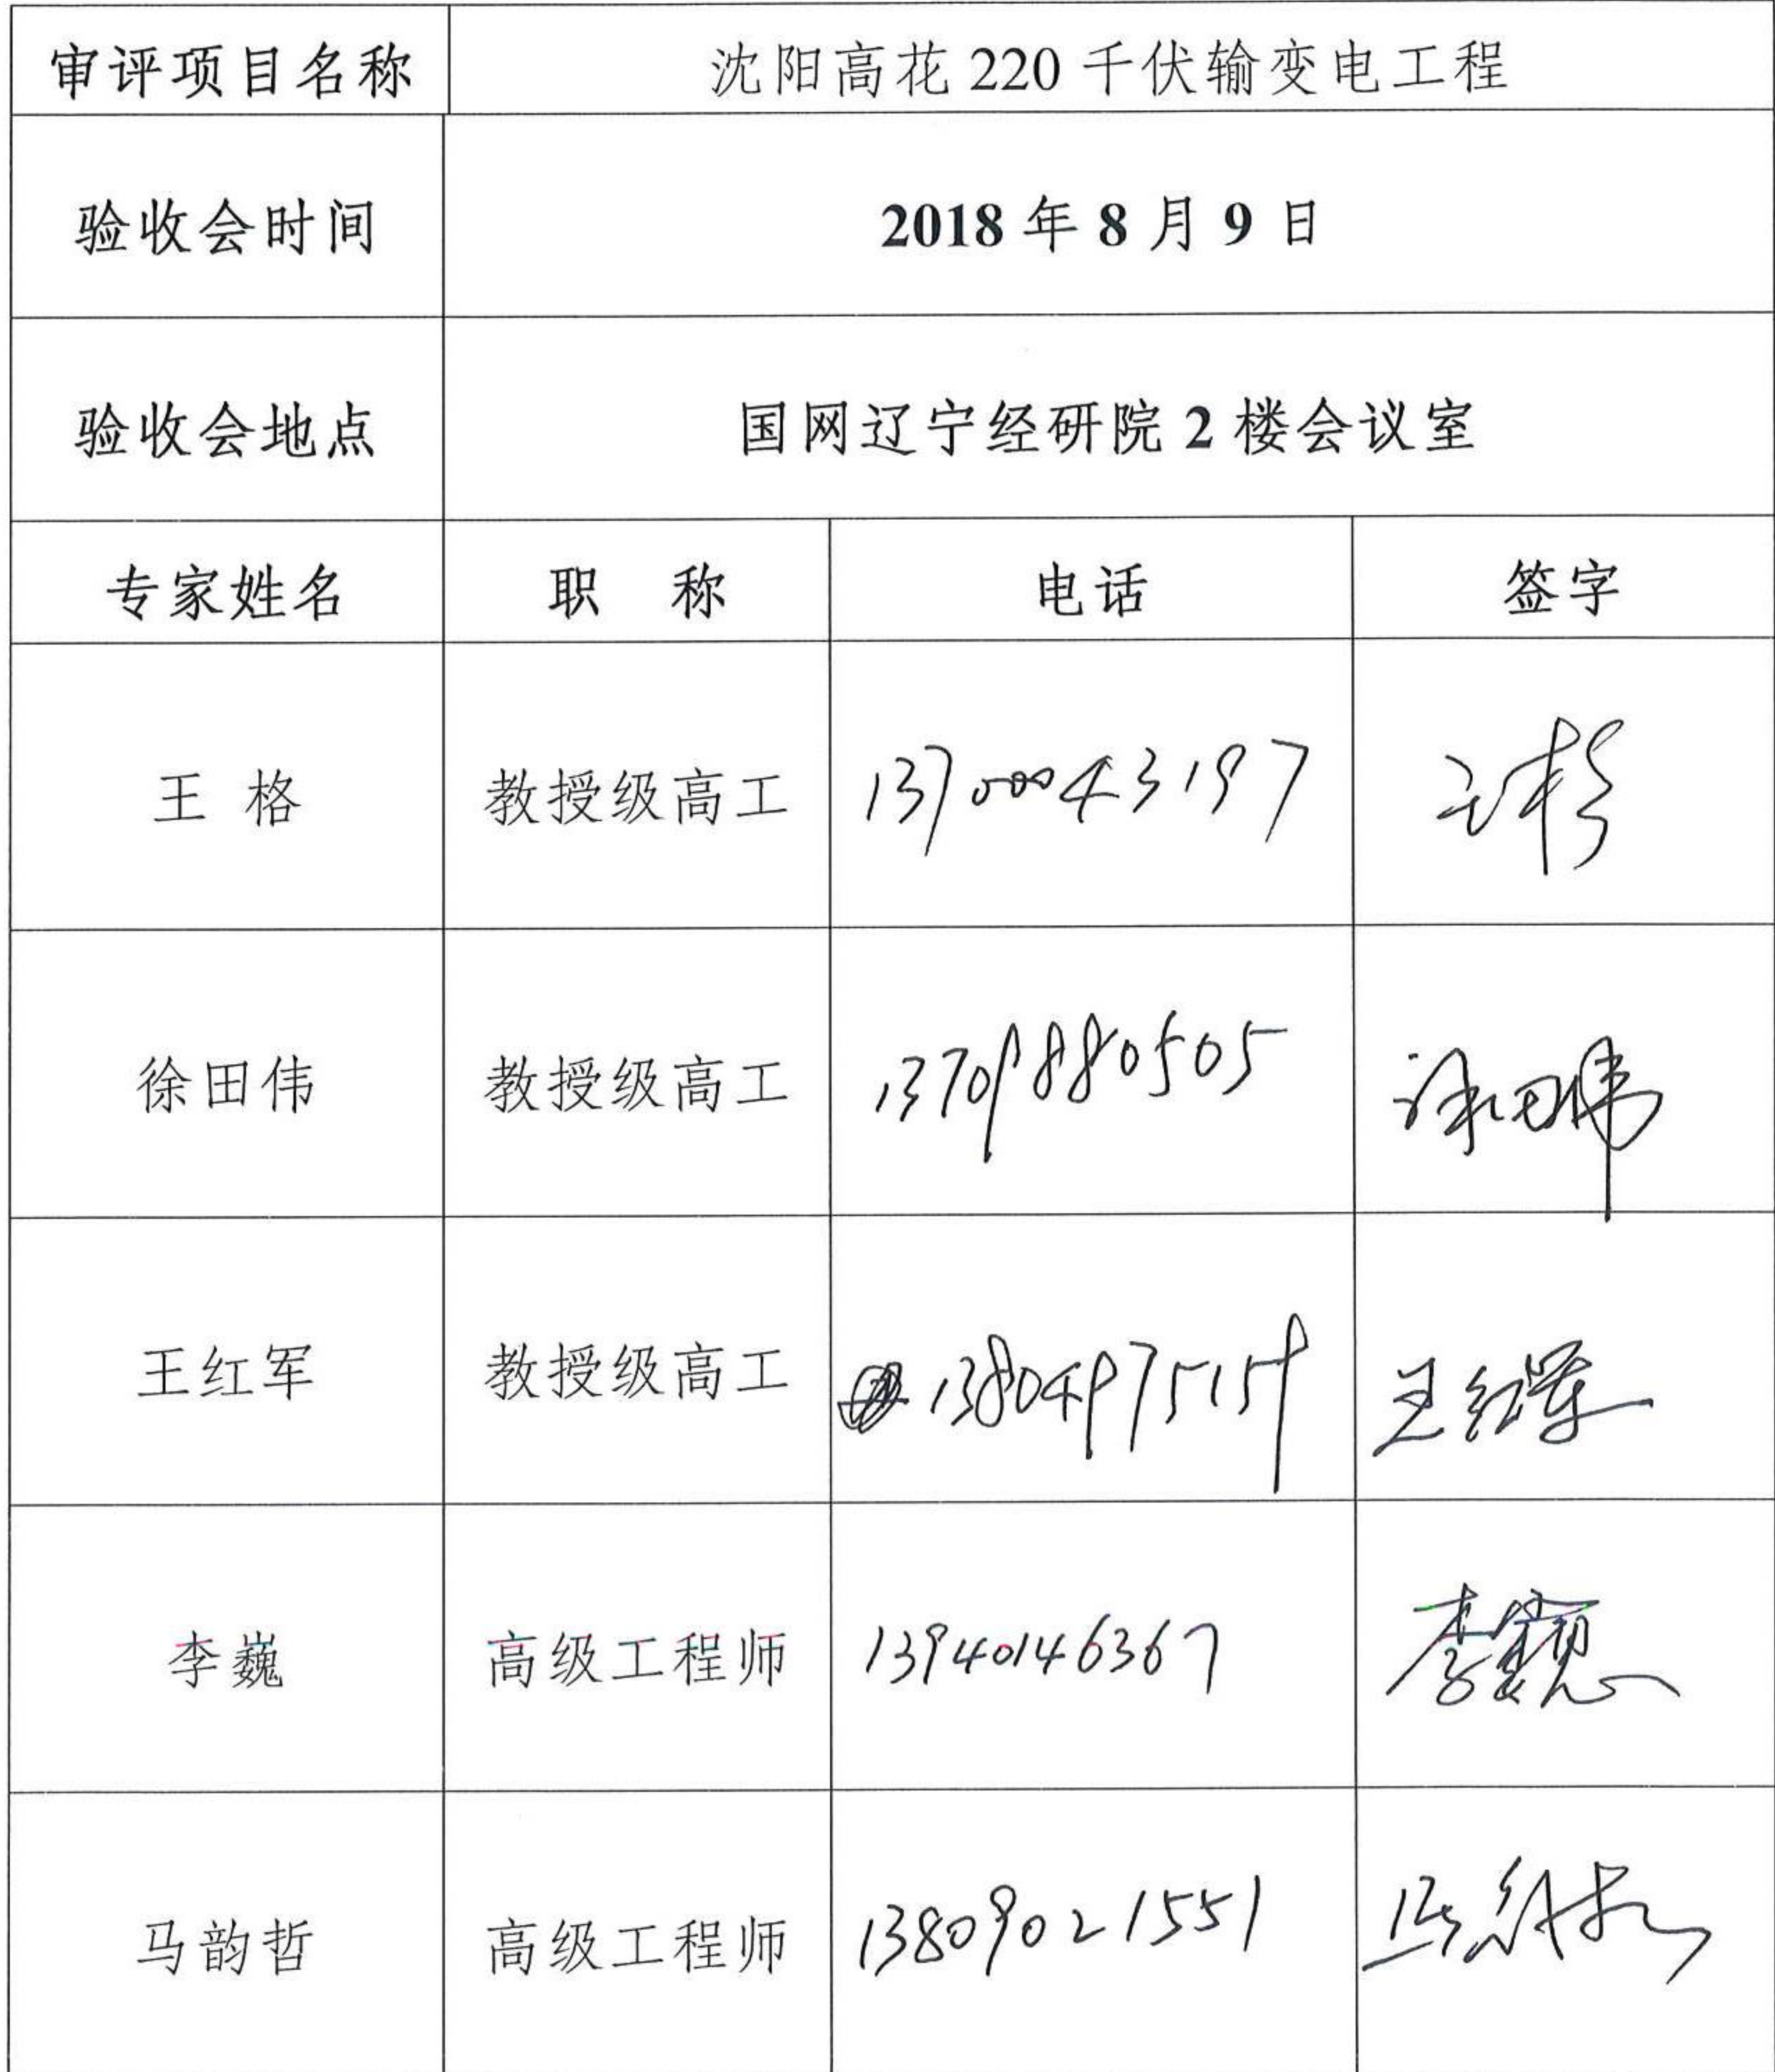 审评项目名称 沈阳高花 220 千伏输变电工程
验收会时间 2018 年 8 月 9 日
验收会地点 国网辽宁经研院 2 楼会议室
专家姓名 职 称 电话 签字
王 格 教授级高工 13700043197
徐田伟 教授级高工 13709880505 徐田伟
王红军 教授级高工 13804975159 王红军
李巍 高级工程师 13940146367 李巍
马韵哲 高级工程师 13809021551